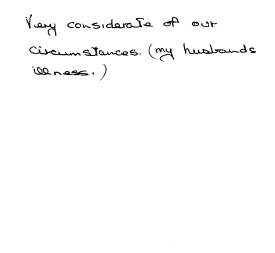 Very considerate of our
circumstances. (my husbands
illness.)